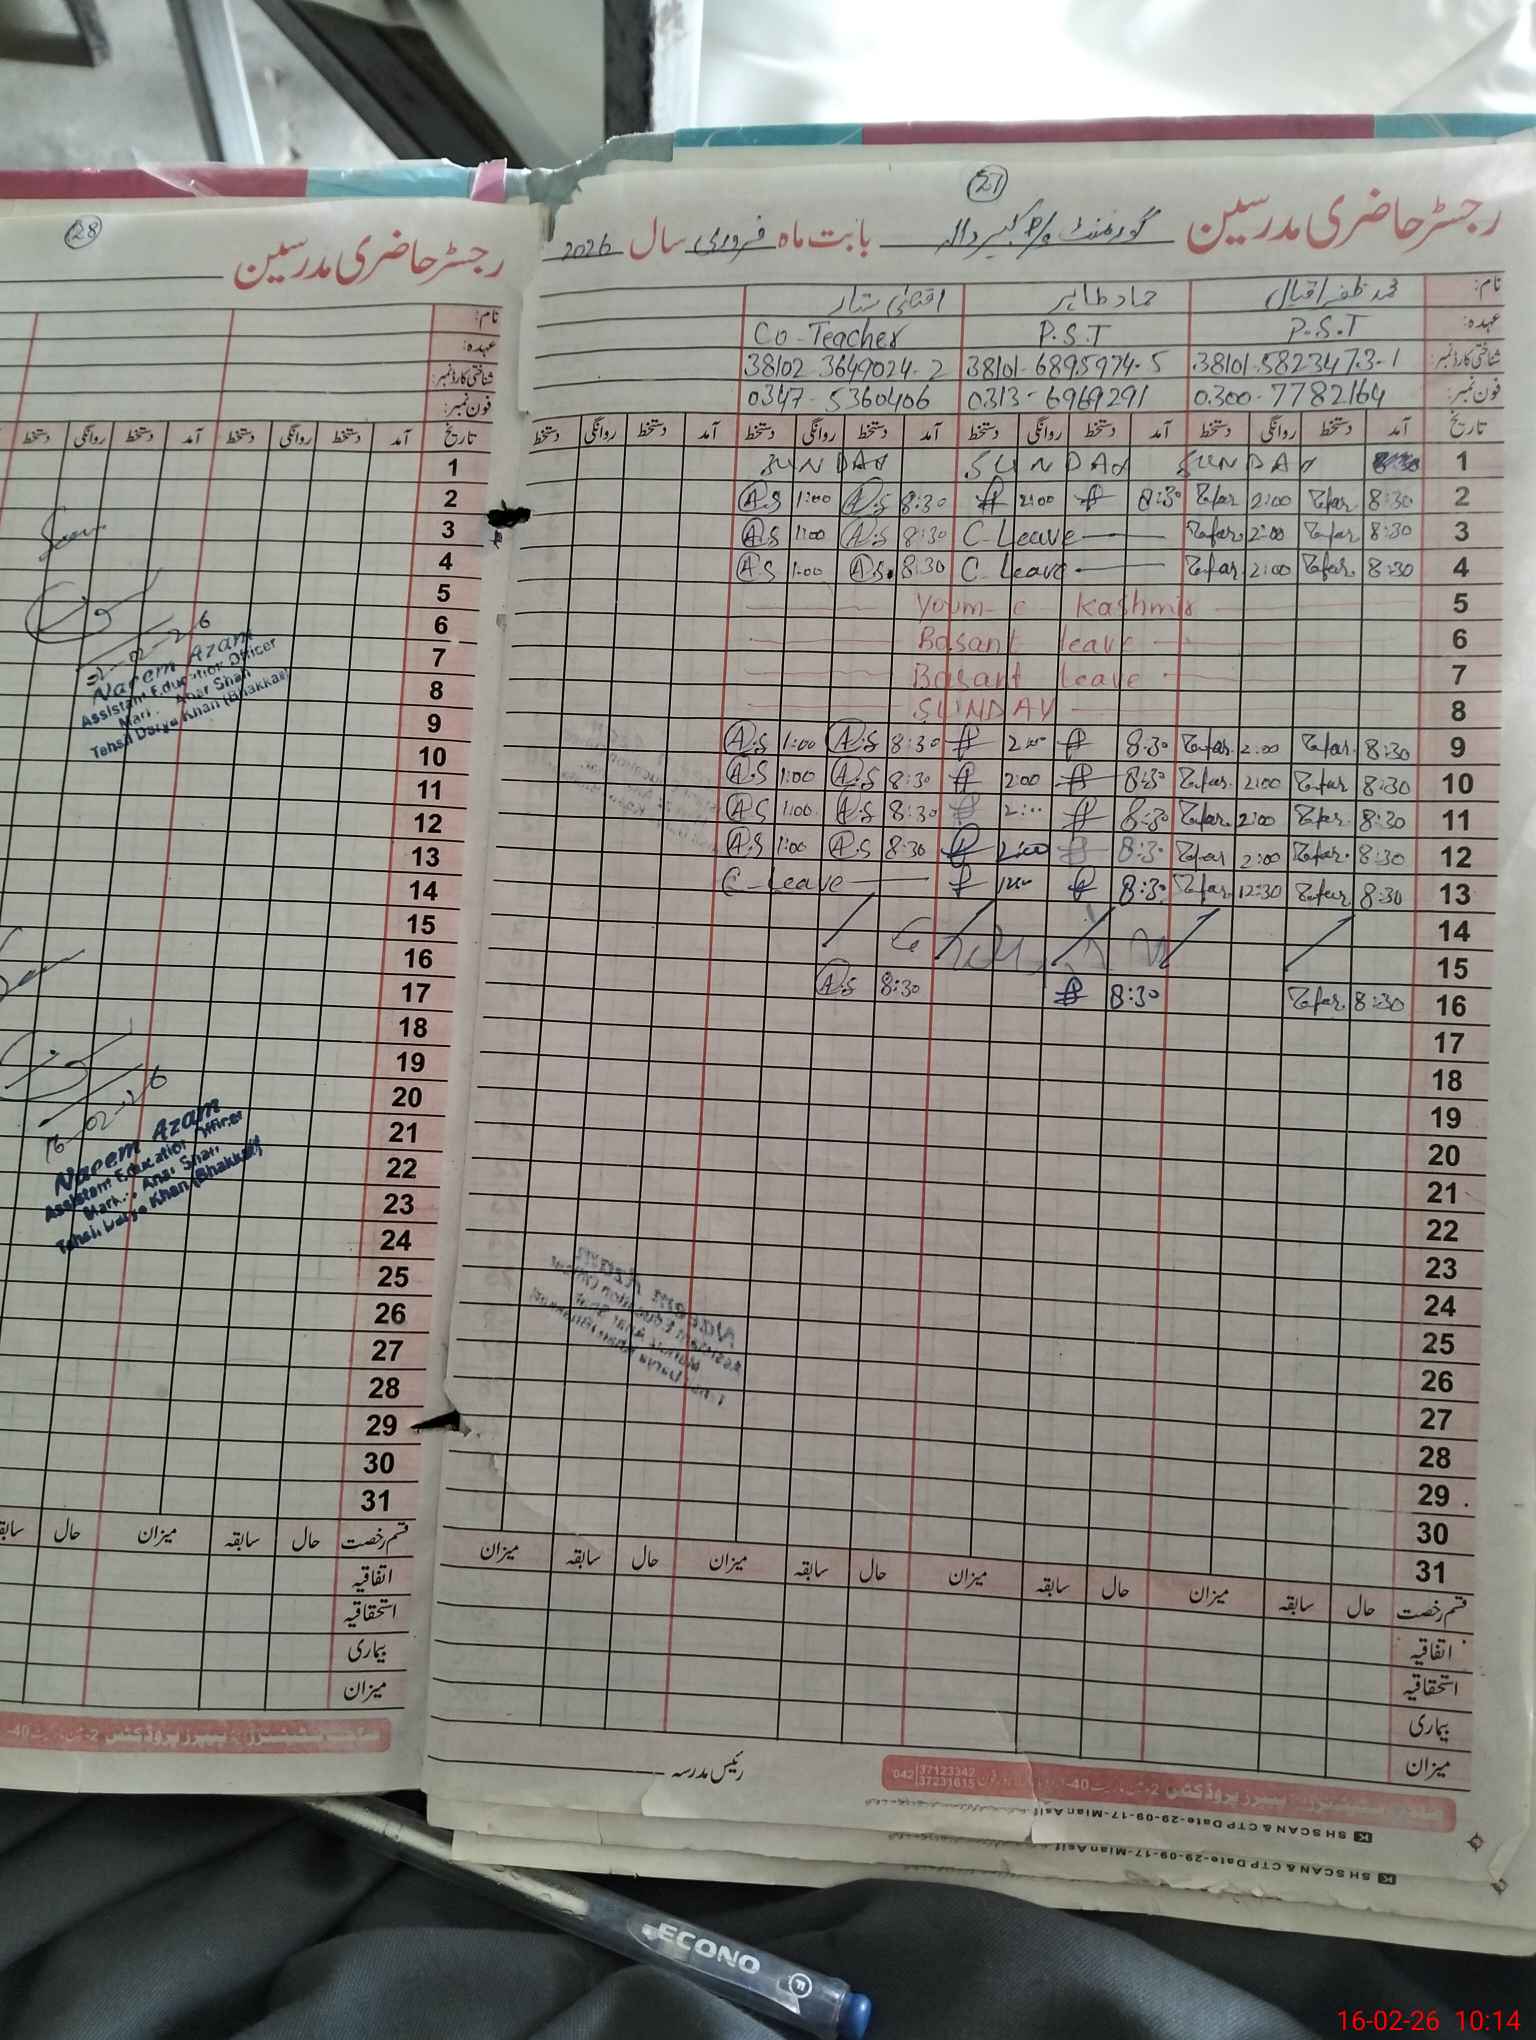 28
رجسٹر حاضری مدرسین
نام:
عہدہ:
شناختی کارڈ نمبر:
فون نمبر:
تاریخ آمد دستخط روانگی دستخط آمد دستخط روانگی
1
2
3
4
5
6
7
8
9
10
11
12
13
14
15
16
17
18
19
20
21
22
23
24
25
26
27
28
29
30
31
Naeem Azam
Assistant Education Officer
Anar Shah
Tehsil Darya Khan (Bhakkar)
16-02-26
Naeem Azam
Assistant Education Officer
Anar Shah
Tehsil Darya Khan (Bhakkar)
قسم رخصت حال سابقہ میزان حال
اتفاقیہ
استحقاقیہ
بیماری
میزان
رجسٹر حاضری مدرسین گورنمنٹ بابت ماہ فروری سال 2026
نام: محمد ظفر اقبال حماد طاہر
عہدہ: P.S.T P.S.T Co-Teacher
شناختی کارڈ نمبر: 38101-5823473-1 38101-6895974-5 38102-3649024-2
فون نمبر: 0300-7782164 0313-6969291 0347-5360406
تاریخ آمد دستخط روانگی دستخط آمد دستخط روانگی دستخط آمد دستخط روانگی دستخط آمد دستخط روانگی دستخط
SUNDAY SUNDAY SUNDAY 1
A.S 1:00 A.S 8:30 2:00 8:30 Zafar 2:00 Zafar 8:30 2
A.S 1:00 A.S 8:30 C-Leave Zafar 2:00 Zafar 8:30 3
A.S 1:00 A.S 8:30 C-Leave Zafar 2:00 Zafar 8:30 4
Youm-e Kashmir 5
Basant leave 6
Basant Leave 7
SUNDAY 8
A.S 1:00 A.S 8:30 2:00 8:30 Zafar 2:00 Zafar 8:30 9
A.S 1:00 A.S 8:30 2:00 8:30 Zafar 2:00 Zafar 8:30 10
A.S 1:00 A.S 8:30 2:00 8:30 Zafar 2:00 Zafar 8:30 11
A.S 1:00 A.S 8:30 2:00 8:30 Zafar 2:00 Zafar 8:30 12
C-Leave 8:30 Zafar 12:30 Zafar 8:30 13
14
15
A.S 8:30 8:30 Zafar 8:30 16
17
18
19
20
21
22
23
24
25
26
27
28
29
30
31
قسم رخصت حال سابقہ میزان حال سابقہ میزان حال سابقہ میزان حال سابقہ میزان
اتفاقیہ
استحقاقیہ
بیماری
میزان
رئیس مدرسہ
042 37123342
37231615
SH SCAN & CTP Date-29-09-17-Mian Asif
SH SCAN & CTP Date-29-09-17-Mian Asif
ECONO
F
16-02-26 10:14